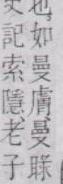 也如曼膚曼睩
史記索隱老子